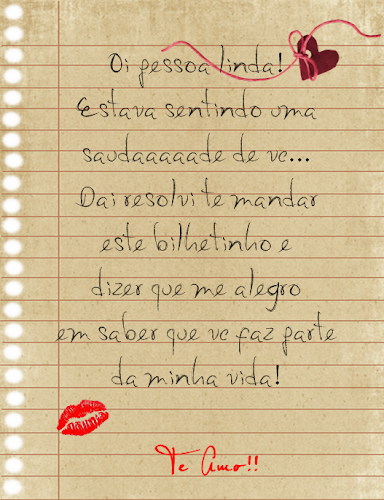 Oi pessoa linda!
Estava sentindo uma
saudaaaaade de vc...
Dai resolvi te mandar
este bilhetinho e
dizer que me alegro
em saber que vc faz parte
da minha vida!
Te Amo!!